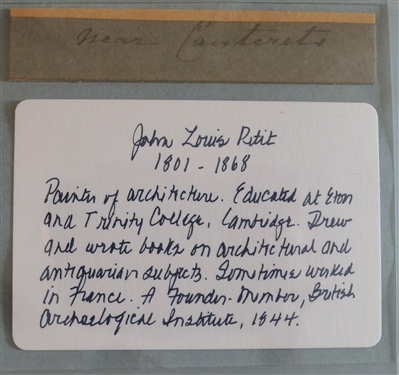 near Cauterets
John Louis Petit
1801 - 1868
Painter of architecture. Educated at Eton
and Trinity College, Cambridge. Drew
and wrote books on architectural and
antiquarian subjects. Sometimes worked
in France. A Founder-Member, British
Archaelogical Institute, 1844.